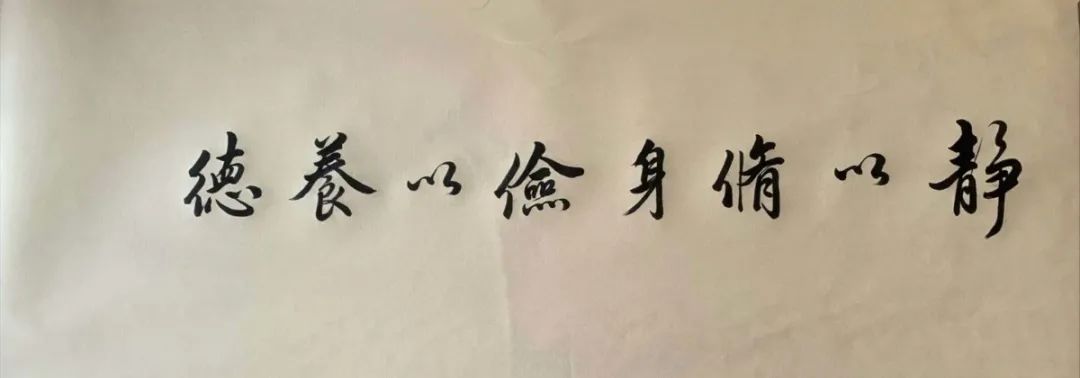 静以脩身儉以養德